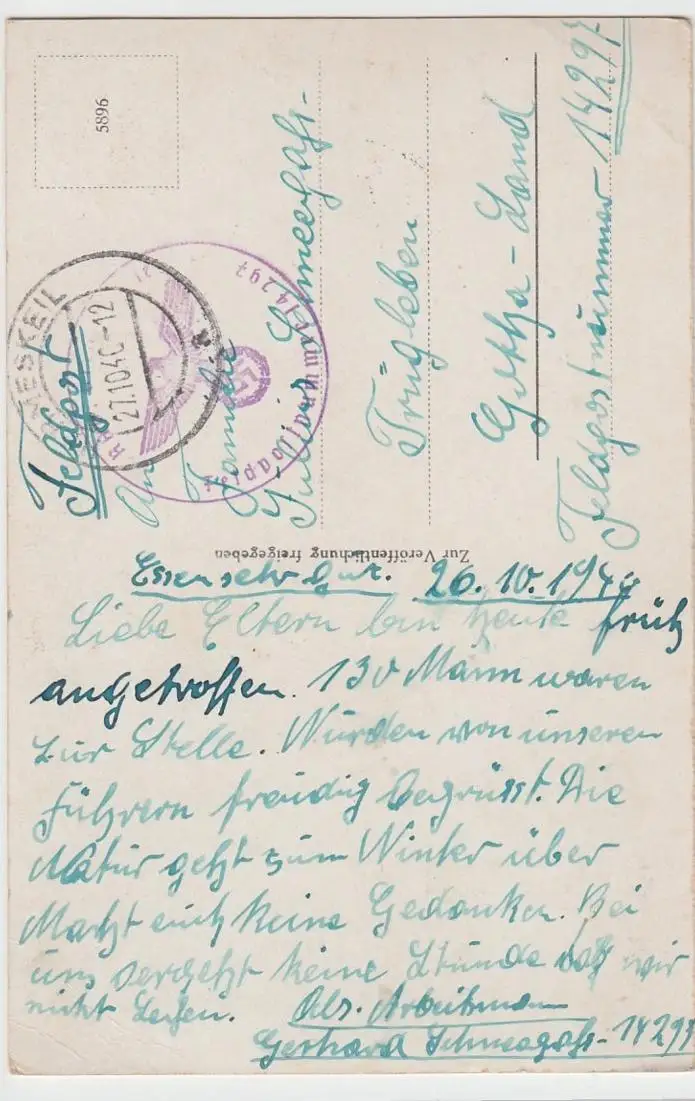 5896
Feldpost
An
Familie
Julius Schneegaß-
Trügleben
Gotha-Land
Feldpostnummer 14297
MESKEIL
27.10.40-12
a
14297
Zur Veröffentlichung freigegeben
Essen sehr gut. 26.10.1940
Liebe Eltern bin heute früh
angetroffen. 130 Mann waren
zur Stelle. Wurden von unseren
Führern freudig begrüsst. Die
Natur geht zum Winter über
Macht euch keine Gedanken. Bei
uns vergeht keine Stunde wir
nicht
Abs. Arbeitmann
Gerhard Schneegaß-14297